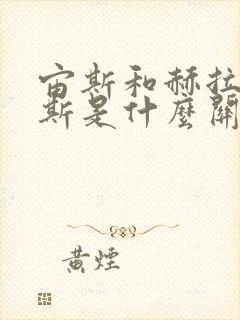 宙斯和赫拉
斯是什麼關
黃煙